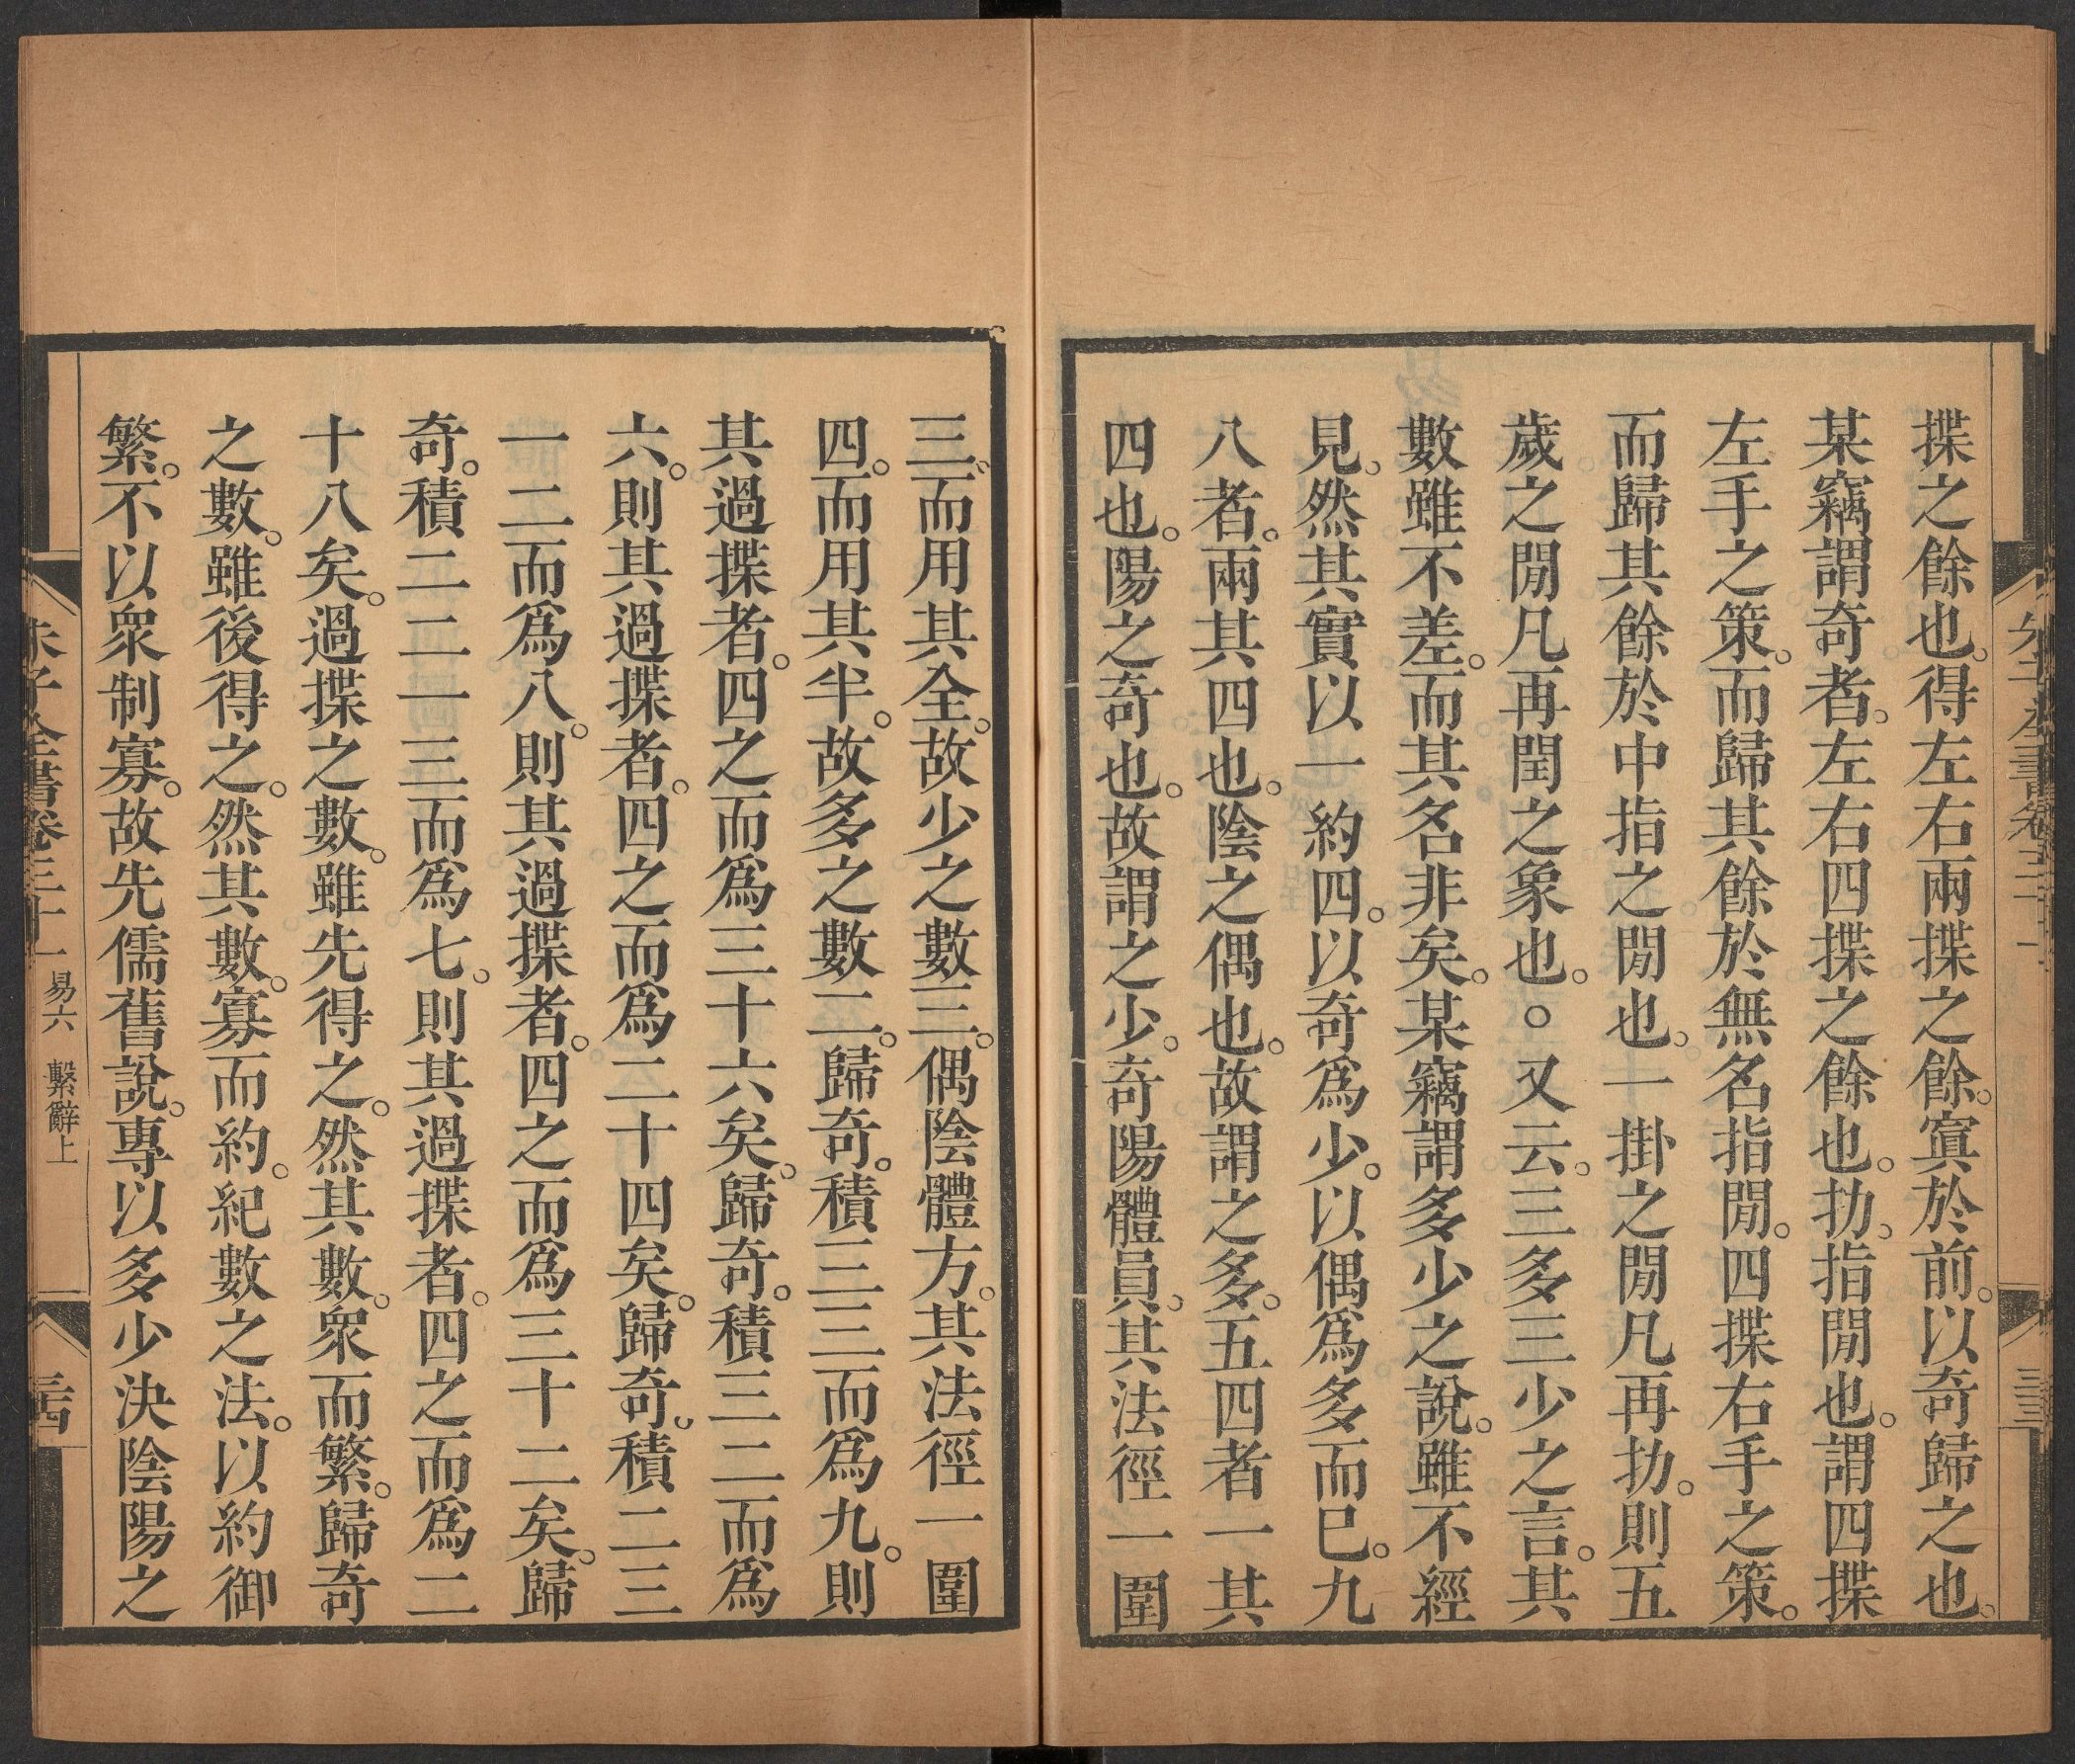 揲之餘也。得左右兩揲之餘。寘於前。以奇歸之也。
某竊謂奇者。左右四揲之餘也。扐。指閒也。謂四揲
左手之策。而歸其餘於無名指閒。四揲右手之策。
而歸其餘於中指之閒也。一掛之閒凡再扐。則五
歲之閒凡再閏之象也。○又云。三多三少之言。其
數雖不差。而其名非矣。某竊謂多少之說。雖不經
見。然其實以一約四。以奇爲少。以偶爲多而已。九
八者。兩其四也。陰之偶也。故謂之多。五四者一其
四也。陽之奇也。故謂之少。奇陽體員。其法徑一圍
三。而用其全。故少之數三。偶陰體方。其法徑一圍
四。而用其半。故多之數二。歸奇。積三三而爲九。則
其過揲者。四之而爲三十六矣。歸奇。積三二而爲
六。則其過揲者。四之而爲二十四矣。歸奇。積二三
一二而爲八。則其過揲者。四之而爲三十二矣。歸
奇。積二二一三而爲七。則其過揲者。四之而爲二
十八矣。過揲之數。雖先得之。然其數。衆而繁。歸奇
之數。雖後得之。然其數。寡而約。紀數之法。以約御
繁。不以衆制寡。故先儒舊說。專以多少決陰陽之
朱子全書卷三十一 易六 繫辭上